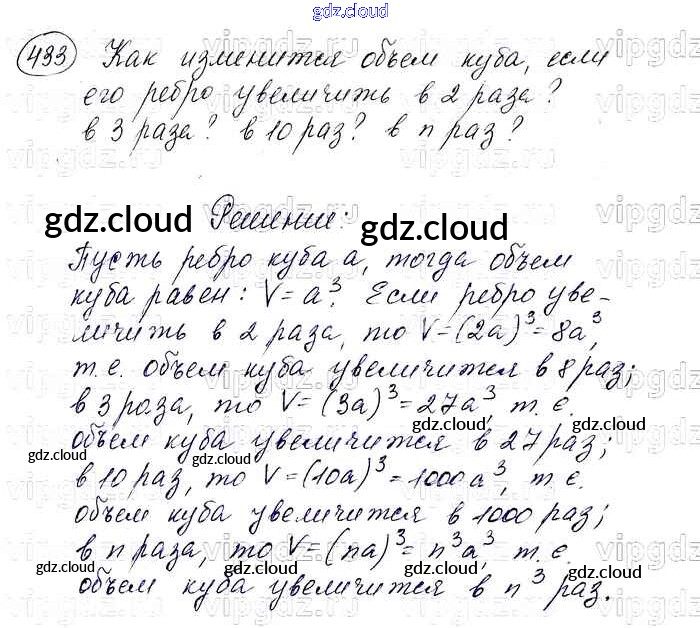 gdz.cloud
433 Как изменится объем куба, если
его ребро увеличить в 2 раза?
в 3 раза? в 10 раз? в n раз?
Решение:
gdz.cloud gdz.cloud
Пусть ребро куба a, тогда объем
куба равен: V = a³. Если ребро уве-
личить в 2 раза, то V=(2a)³=8a³,
т.е. объем куба увеличится в 8 раз;
в 3 раза, то V=(3a)³=27a³, т.е.
объем куба увеличится в 27 раз;
gdz.cloud gdz.cloud gdz.cloud
в 10 раз, то V=(10a)³=1000a³, т.е.
объем куба увеличится в 1000 раз;
в n раза, то V=(na)³=n³a³, т.е.
gdz.cloud gdz.cloud gdz.cloud
объем куба увеличится в n³ раз.